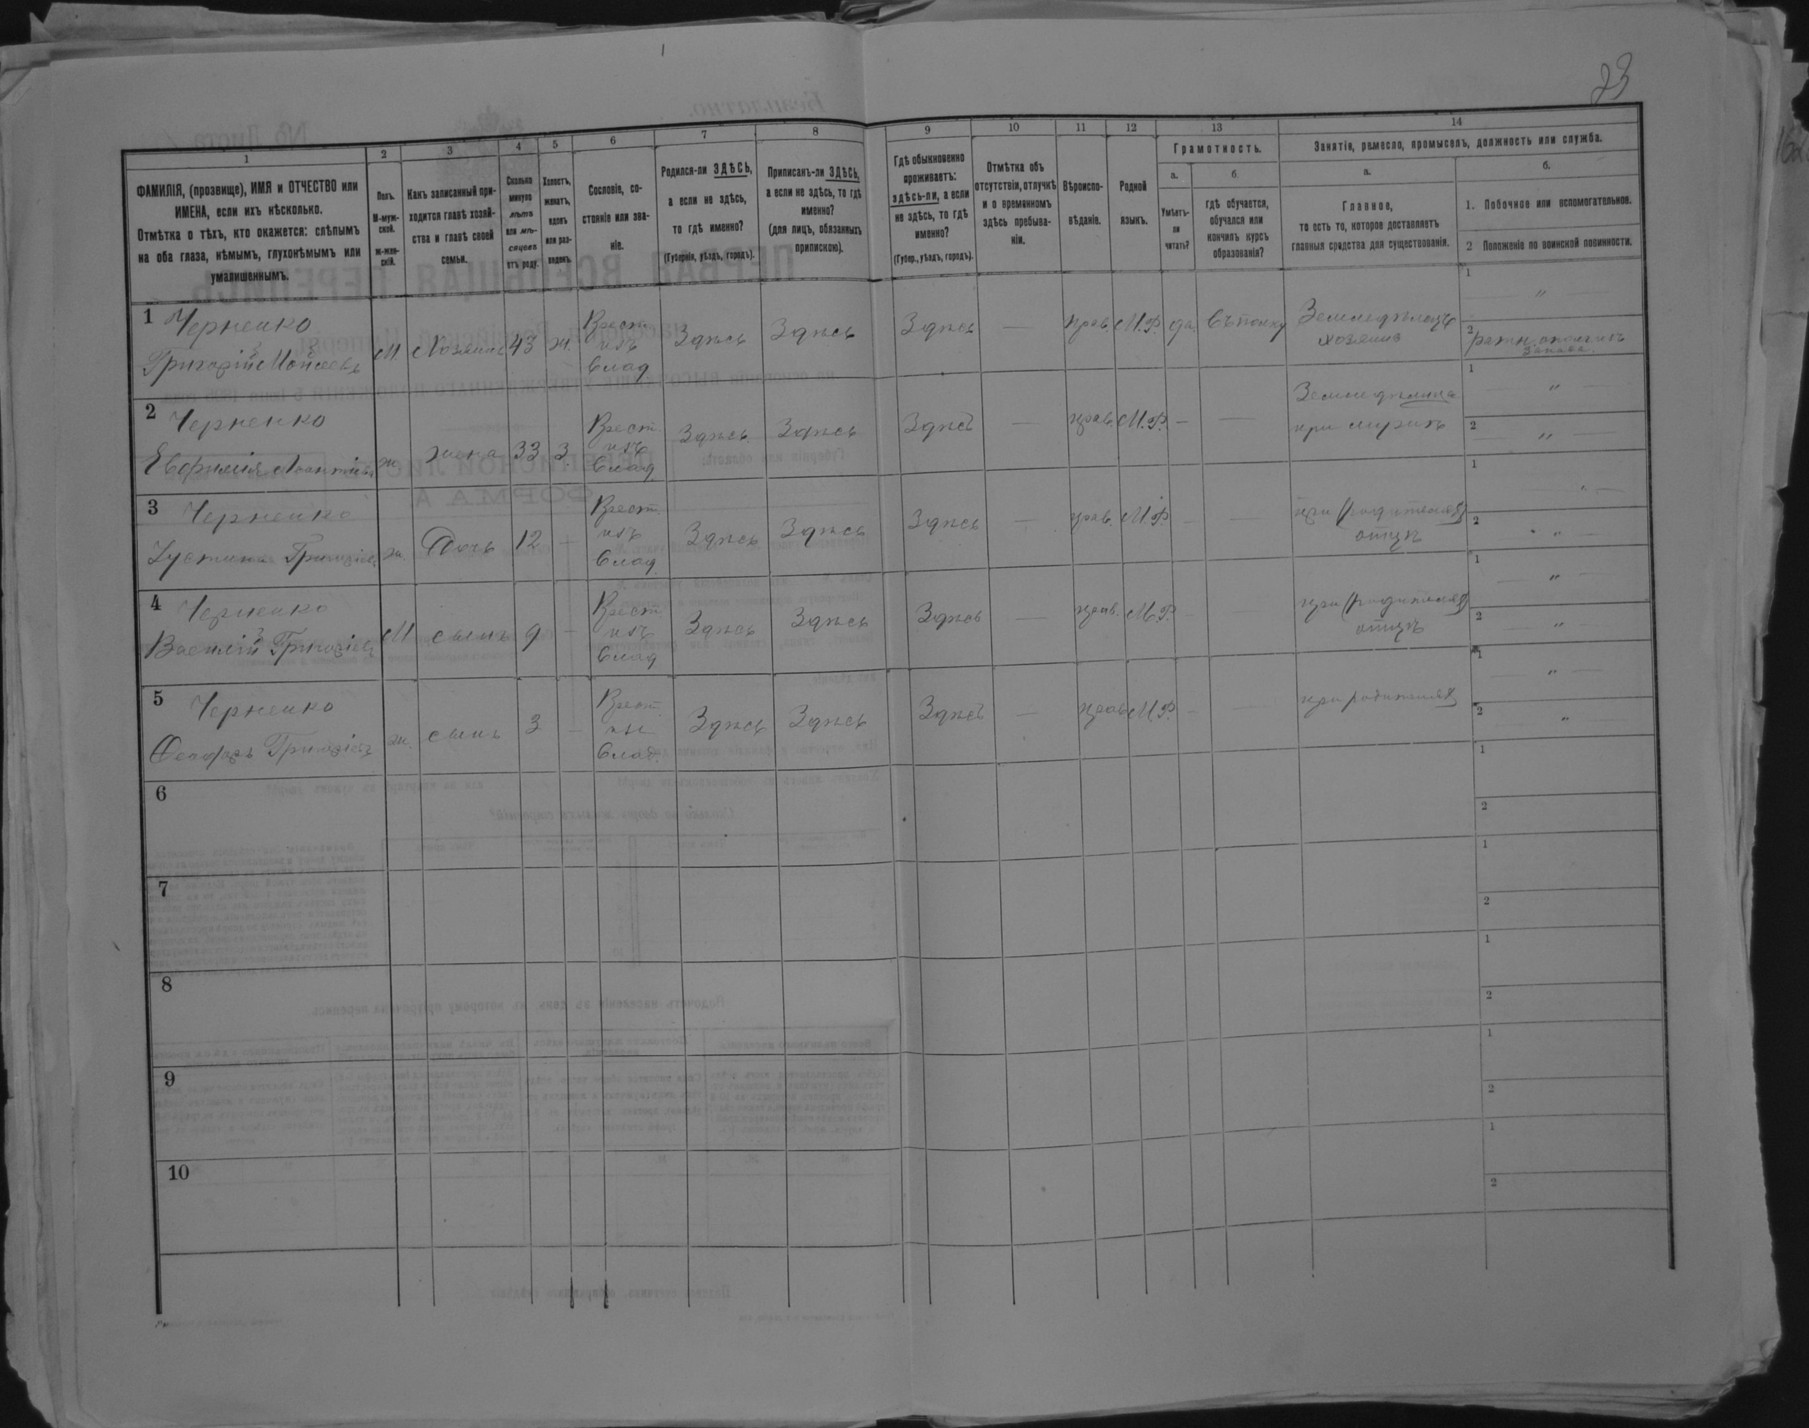 23
1
2
3
4
5
6
7
8
9
10
11
12
13
14
ФАМИЛІЯ, (прозвище), ИМЯ и ОТЧЕСТВО или
ИМЕНА, если ихъ нѣсколько.
Отмѣтка о тѣхъ, кто окажется: слѣпымъ
на оба глаза, нѣмымъ, глухонѣмымъ или
умалишеннымъ.
Полъ.
М-муж-
ской.
Ж-жен-
скій.
Какъ записанный при-
ходится главѣ хозяй-
ства и главѣ своей
семьи.
Сколько
минуло
лѣтъ
или мѣ-
сяцевъ
отъ роду.
Холостъ,
женатъ,
вдовъ
или раз-
веденъ.
Сословіе, со-
стояніе или зва-
ніе.
Родился-ли ЗДѢСЬ,
а если не здѣсь,
то гдѣ именно?
(Губернія, уѣздъ, городъ).
Приписанъ-ли ЗДѢСЬ,
а если не здѣсь, то гдѣ
именно?
(для лицъ, обязанныхъ
припискою).
Гдѣ обыкновенно
проживаетъ:
здѣсь-ли, а если
не здѣсь, то гдѣ
именно?
(Губер., уѣздъ, городъ).
Отмѣтка объ
отсутствіи, отлучкѣ
и о временномъ
здѣсь пребыва-
ніи.
Вѣроиспо-
вѣданіе.
Родной
языкъ.
Грамотность.
а.
Умѣетъ-
ли
читать?
б.
гдѣ обучается,
обучался или
кончилъ курсъ
образованія?
Занятіе, ремесло, промыселъ, должность или служба.
а.
Главное,
то есть то, которое доставляетъ
главныя средства для существованія.
б.
1. Побочное или вспомогательное.
2 Положеніе по воинской повинности.
1 Черненко
Григорій Моисеевъ
М. Хозяинъ 43 ж. Крест. изъ Влад Здѣсь Здѣсь Здѣсь — прав. М.Р. да. Въ полку Земледѣлецъ хозяинъ
1 "
2 ратн. ополчен. запаса.
2 Черненко
Ж. жена 33 З. Крест изъ Влад Здѣсь Здѣсь Здѣсь — прав. М.Р. — — при мужѣ
1 "
2 "
3 Черненко
Ж. Дочь 12 — Крест изъ Влад. Здѣсь Здѣсь Здѣсь — прав. М.Р. — — отцѣ
1 "
2 "
4 Черненко
Василій Григоріев
М сынъ 9 — Крест изъ Влад Здѣсь Здѣсь Здѣсь — прав. М.Р. — — отцѣ
1 "
2 "
5 Черненко
Ж. сынъ 3 — Крест. Влад. Здѣсь Здѣсь Здѣсь — прав М.Р. — — при родителях
1 "
2 "
6
1
2
7
1
2
8
1
2
9
1
2
10
1
2